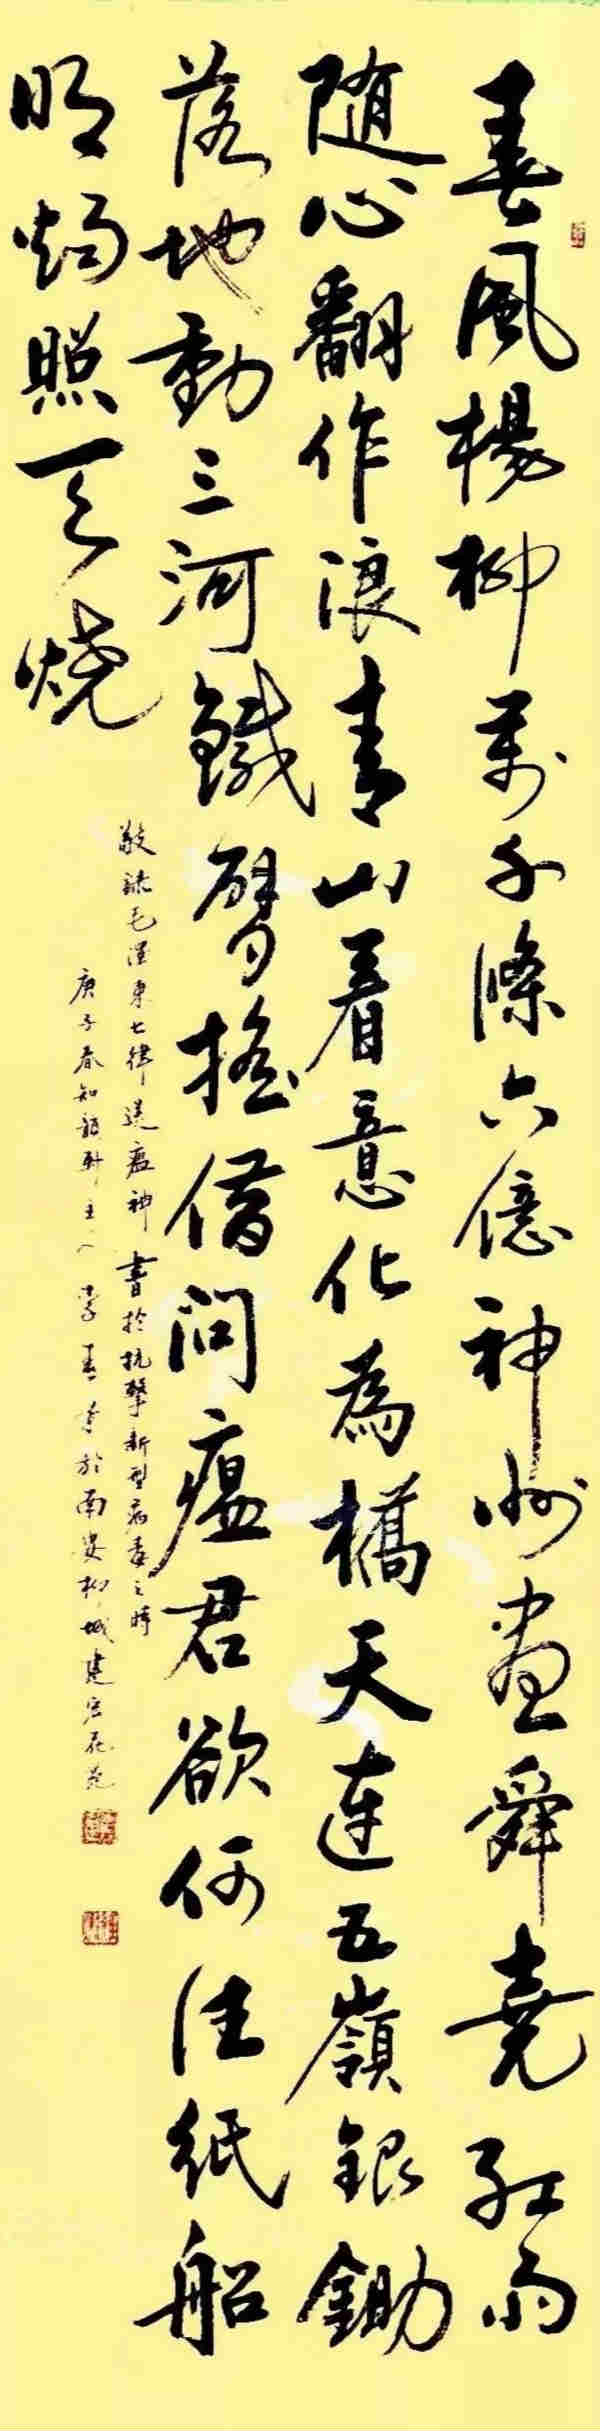 春風楊柳萬千條六億神州盡舜堯紅雨
隨心翻作浪青山着意化為橋天連五嶺銀鋤
落地動三河鐵臂搖借問瘟君欲何往紙船
明燭照天燒
敬録毛澤東七律送瘟神書於抗擊新型病毒之時
庚子春知韻軒主人李春于於南安柳城建宏花苑